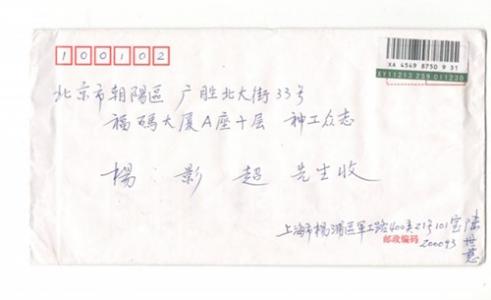 XA 4549 8750 9 31
100102
北京市朝陽區 广胜北大街33号
福碼大厦A座十层 神工众志
楊 影 超 先生收
上海市楊浦区军工路400弄21号101室
邮政编码 200093